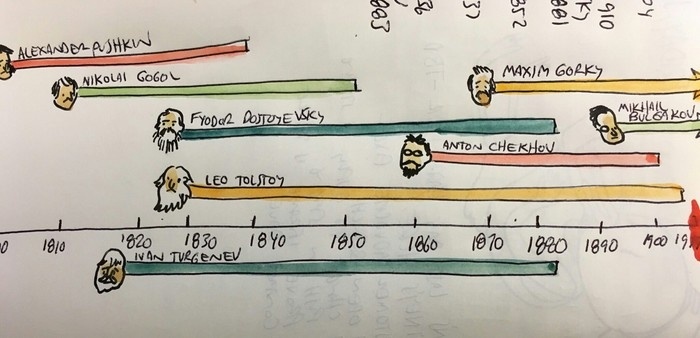 ALEXANDER PUSHKIN
NIKOLAI GOGOL
MAXIM GORKY
FYODOR DOSTOYEVSKY
MIKHAIL
BULGAKOV
ANTON CHEKHOV
LEO TOLSTOY
1810 1820 1830 1840 1850 1860 1870 1880 1890 1900
IVAN TURGENEV
1910